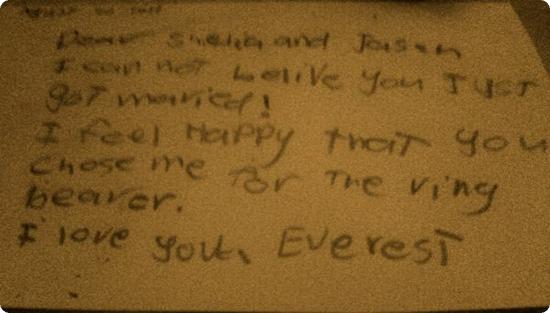 Dear Shelia and Jason
I can not belive you Just
got married!
I feel Happy that you
chose me for The ring
bearer.
I love you, Everest